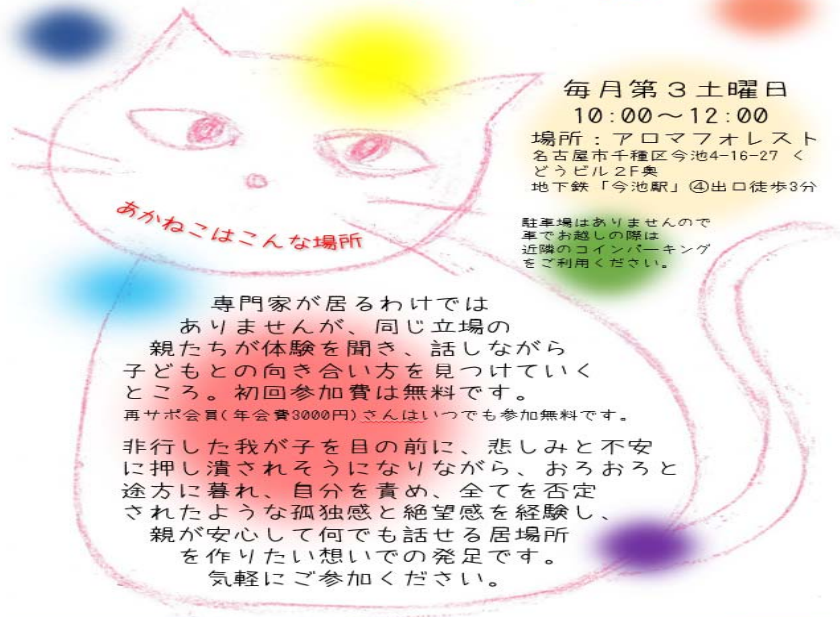 毎月第3土曜日
10:00～12:00
場所：アロマフォレスト
名古屋市千種区今池4-16-27 く
どうビル2F奥
地下鉄「今池駅」④出口徒歩3分
駐車場はありませんので
車でお越しの際は
近隣のコインパーキング
をご利用ください。
あかねこはこんな場所
専門家が居るわけでは
ありませんが、同じ立場の
親たちが体験を聞き、話しながら
子どもとの向き合い方を見つけていく
ところ。初回参加費は無料です。
再サポ会員(年会費3000円)さんはいつでも参加無料です。
非行した我が子を目の前に、悲しみと不安
に押し潰されそうになりながら、おろおろと
途方に暮れ、自分を責め、全てを否定
されたような孤独感と絶望感を経験し、
親が安心して何でも話せる居場所
を作りたい想いでの発足です。
気軽にご参加ください。